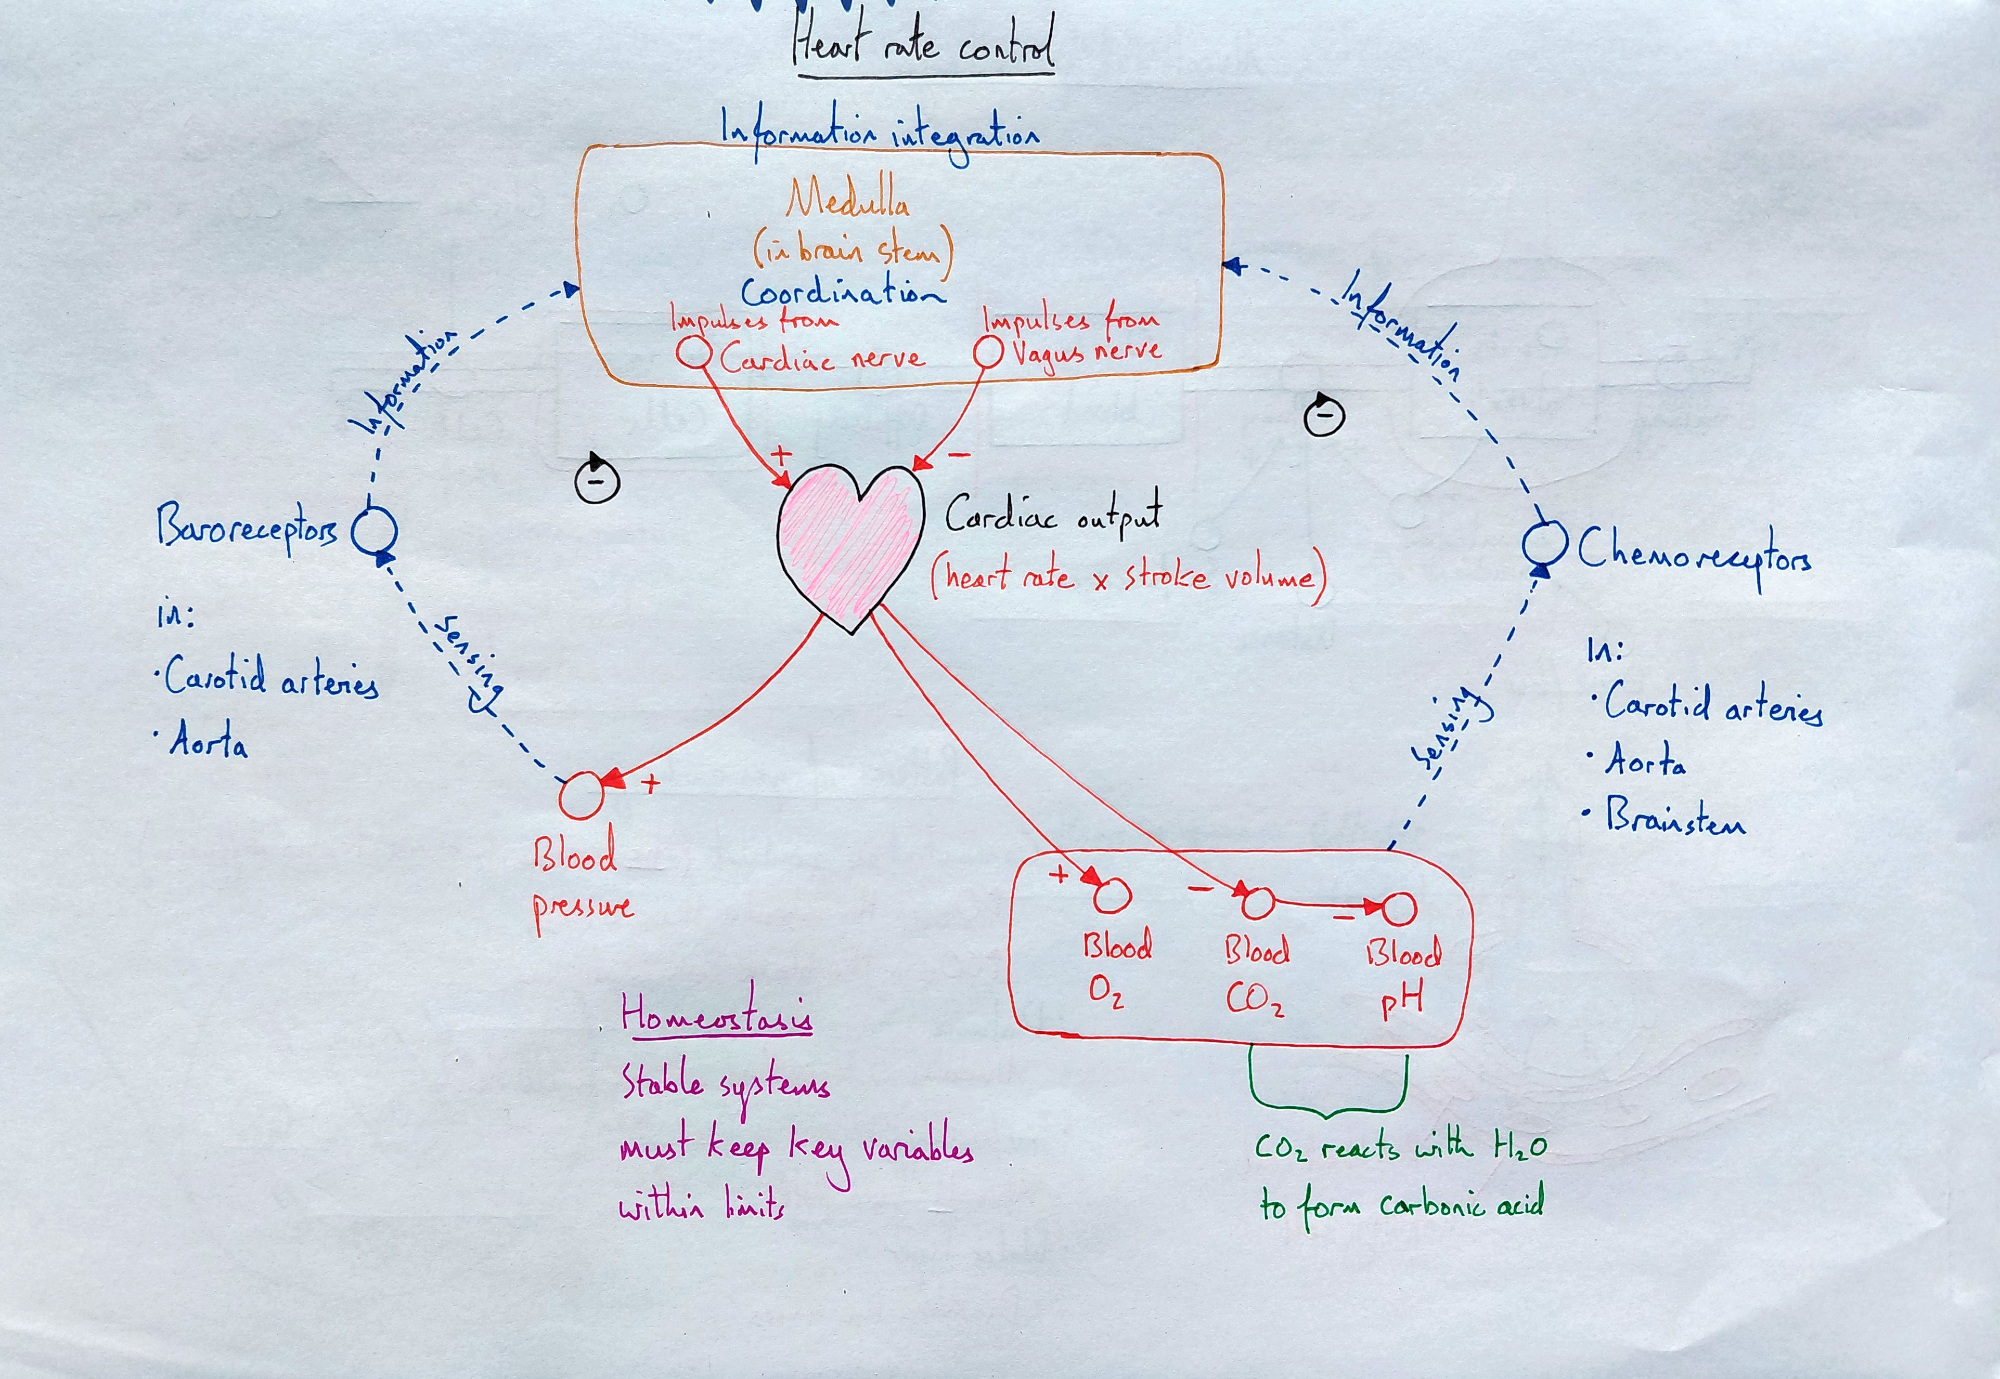 Heart rate control
Information integration
Medulla
(in brain stem)
Coordination
Impulses from
Cardiac nerve
Impulses from
Vagus nerve
Information
Information
+
−
−
−
Baroreceptors
in:
· Carotid arteries
· Aorta
Sensing
Cardiac output
(heart rate x stroke volume)
Chemoreceptors
In:
· Carotid arteries
· Aorta
· Brainstem
Sensing
+
Blood
pressure
+
−
−
Blood
O₂
Blood
CO₂
Blood
pH
Homeostasis
Stable systems
must keep key variables
within limits
CO₂ reacts with H₂O
to form carbonic acid